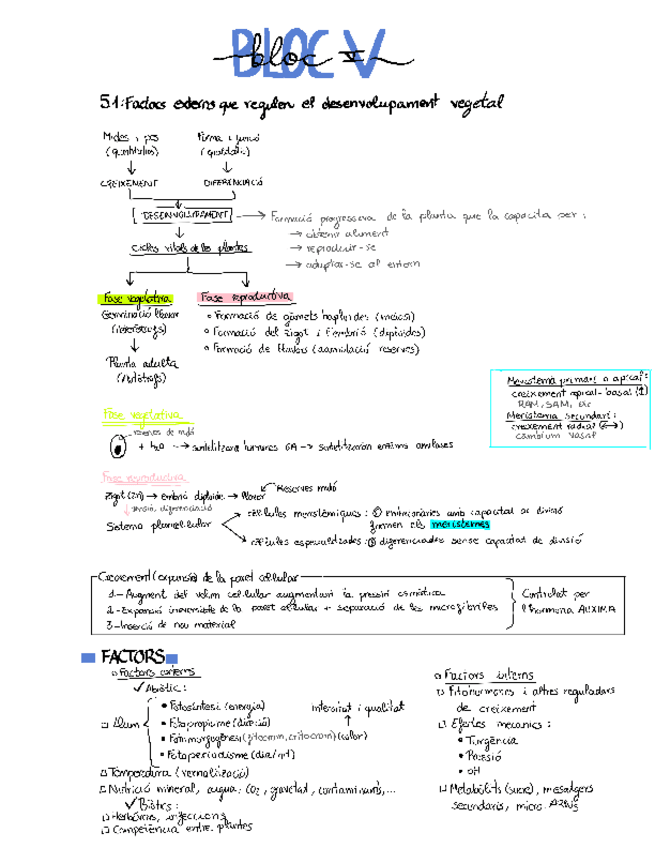 BLOC V
bloc V
5.1: Factors externs que regulen el desenvolupament vegetal
Mides i pes
Forma i funció
(quantitatius)
(qualitatiu)
CREIXEMENT
DIFERENCIACIÓ
DESENVOLUPAMENT → Formació progressiva de la planta que la capacita per:
→ obtenir aliment
→ reproduir-se
→ adaptar-se al entorn
Cicles vitals de les plantes
Fase vegetativa
Fase reproductiva
Germinació llavor
(heteròtrofs)
Planta adulta
(autòtrofs)
• Formació de gàmets haploides (meiosi)
• Formació del zigot i l'embrió (diploides)
• Formació de llavors (acumulació reserves)
Meristema primari o apical:
creixement apical-basal (↕)
RAM, SAM, etc
Meristema secundari:
creixement radial (↔)
càmbium vasal
Fase vegetativa
reserves de midó
+ H2O → sintetitzara hormones GA → sintetitzaran enzims amilases
Fase reproductiva
Zigot (2n) → embrió diploide → llavor
Reserves midó
divisió, diferenciació
Sistema pluricel·lular
cèl·lules meristemàtiques: ① embrionàries amb capacitat de divisió
formen els meristemes
cèl·lules especialitzades: ② diferenciades sense capacitat de divisió
Creixement / expansió de la paret cel·lular
1.- Augment del volum cel·lular augmentant la pressió osmòtica
2.- Expansió irreversible de la paret cel·lular + separació de les microfibril·les
3.- Inserció de nou material
Controlat per
l'hormona AUXINA
FACTORS
Factors externs
✓ Abiòtic:
Llum
• Fotosíntesi (energia)
• Fototropisme (direcció)
• Fotomorfogènesi (fitocrom, criptocrom) (color)
• Fotoperiodisme (dia/nit)
intensitat i qualitat
Temperatura (vernalització)
Nutrició mineral, aigua, CO2, gravetat, contaminants,...
✓ Biòtics:
Herbívors, infeccions
Competència entre plantes
Factors interns
Fitohormones i altres reguladors
de creixement
Efectes mecànics:
• Turgència
• Pressió
• pH
Metabòlits (sucre), missatgers
secundaris, micro ARNs